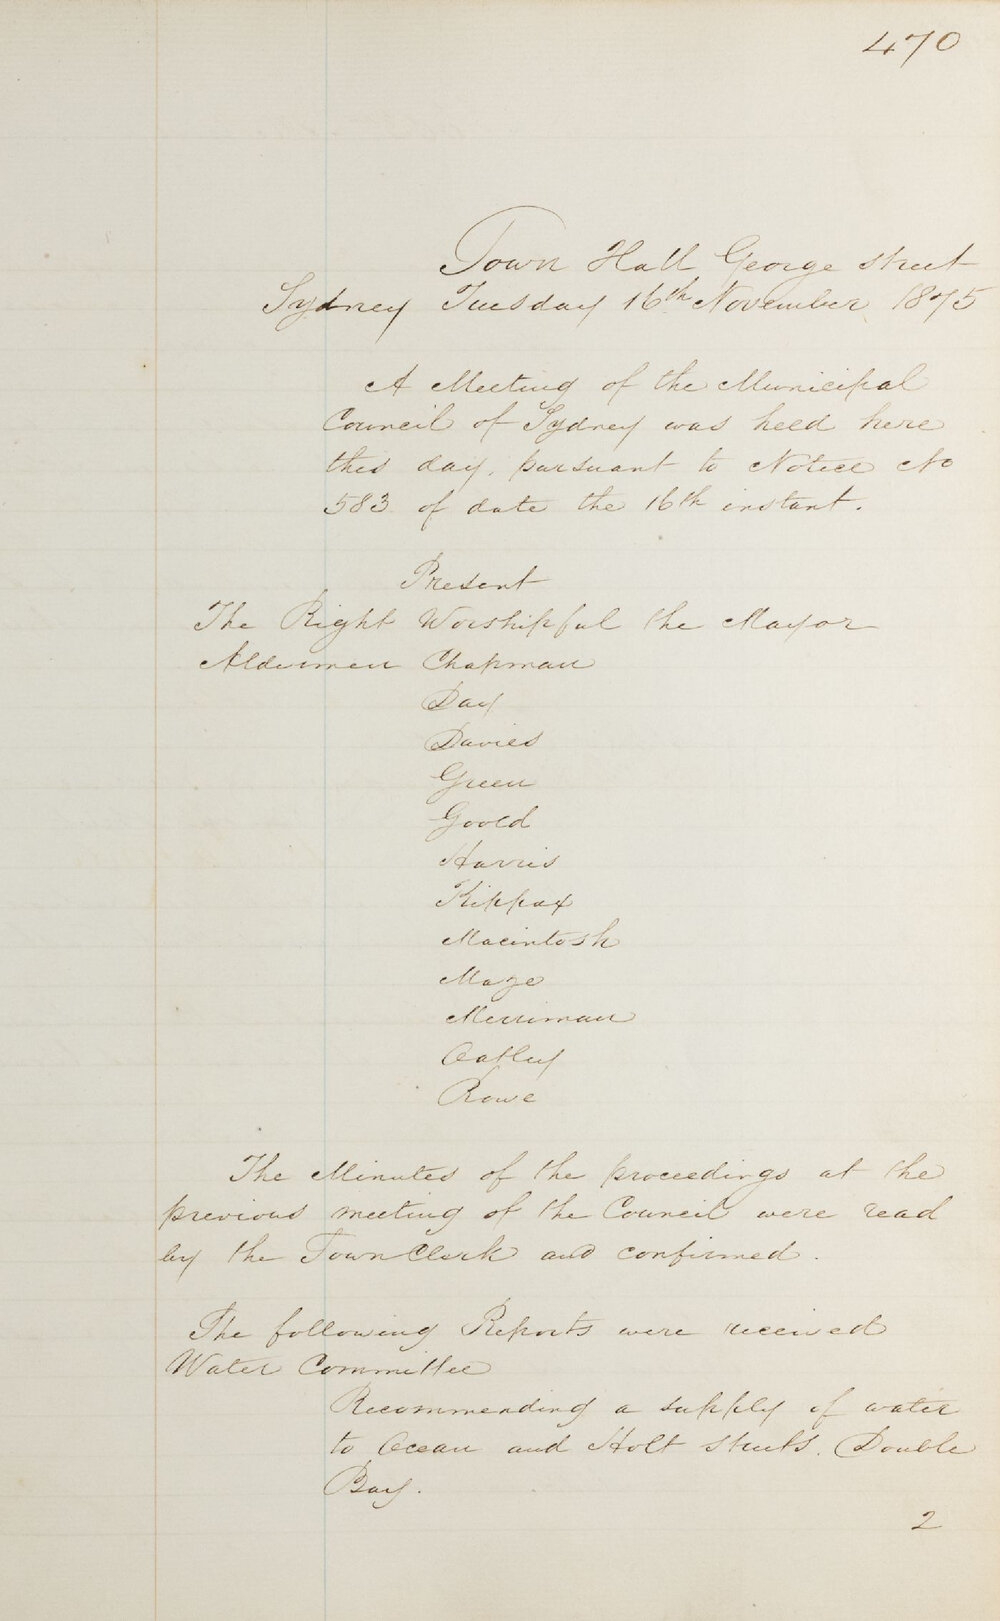 470
Town Hall George street
Sydney Tuesday 16th November 1875
A Meeting of the Municipal
Council of Sydney was held here
this day, pursuant to Notice No
583 of date the 16th instant.
Present
The Right Worshipful the Mayor
Aldermen Chapman
Day
Davies
Green
Goold
Harris
Kippax
Macintosh
Maze
Merriman
Oatley
Rowe
The Minutes of the proceedings at the
previous meeting of the Council were read
by the Town Clerk and confirmed.
The following Reports were received
Water Committee
Recommending a supply of water
to Ocean and Holt streets, Double
Bay.
2